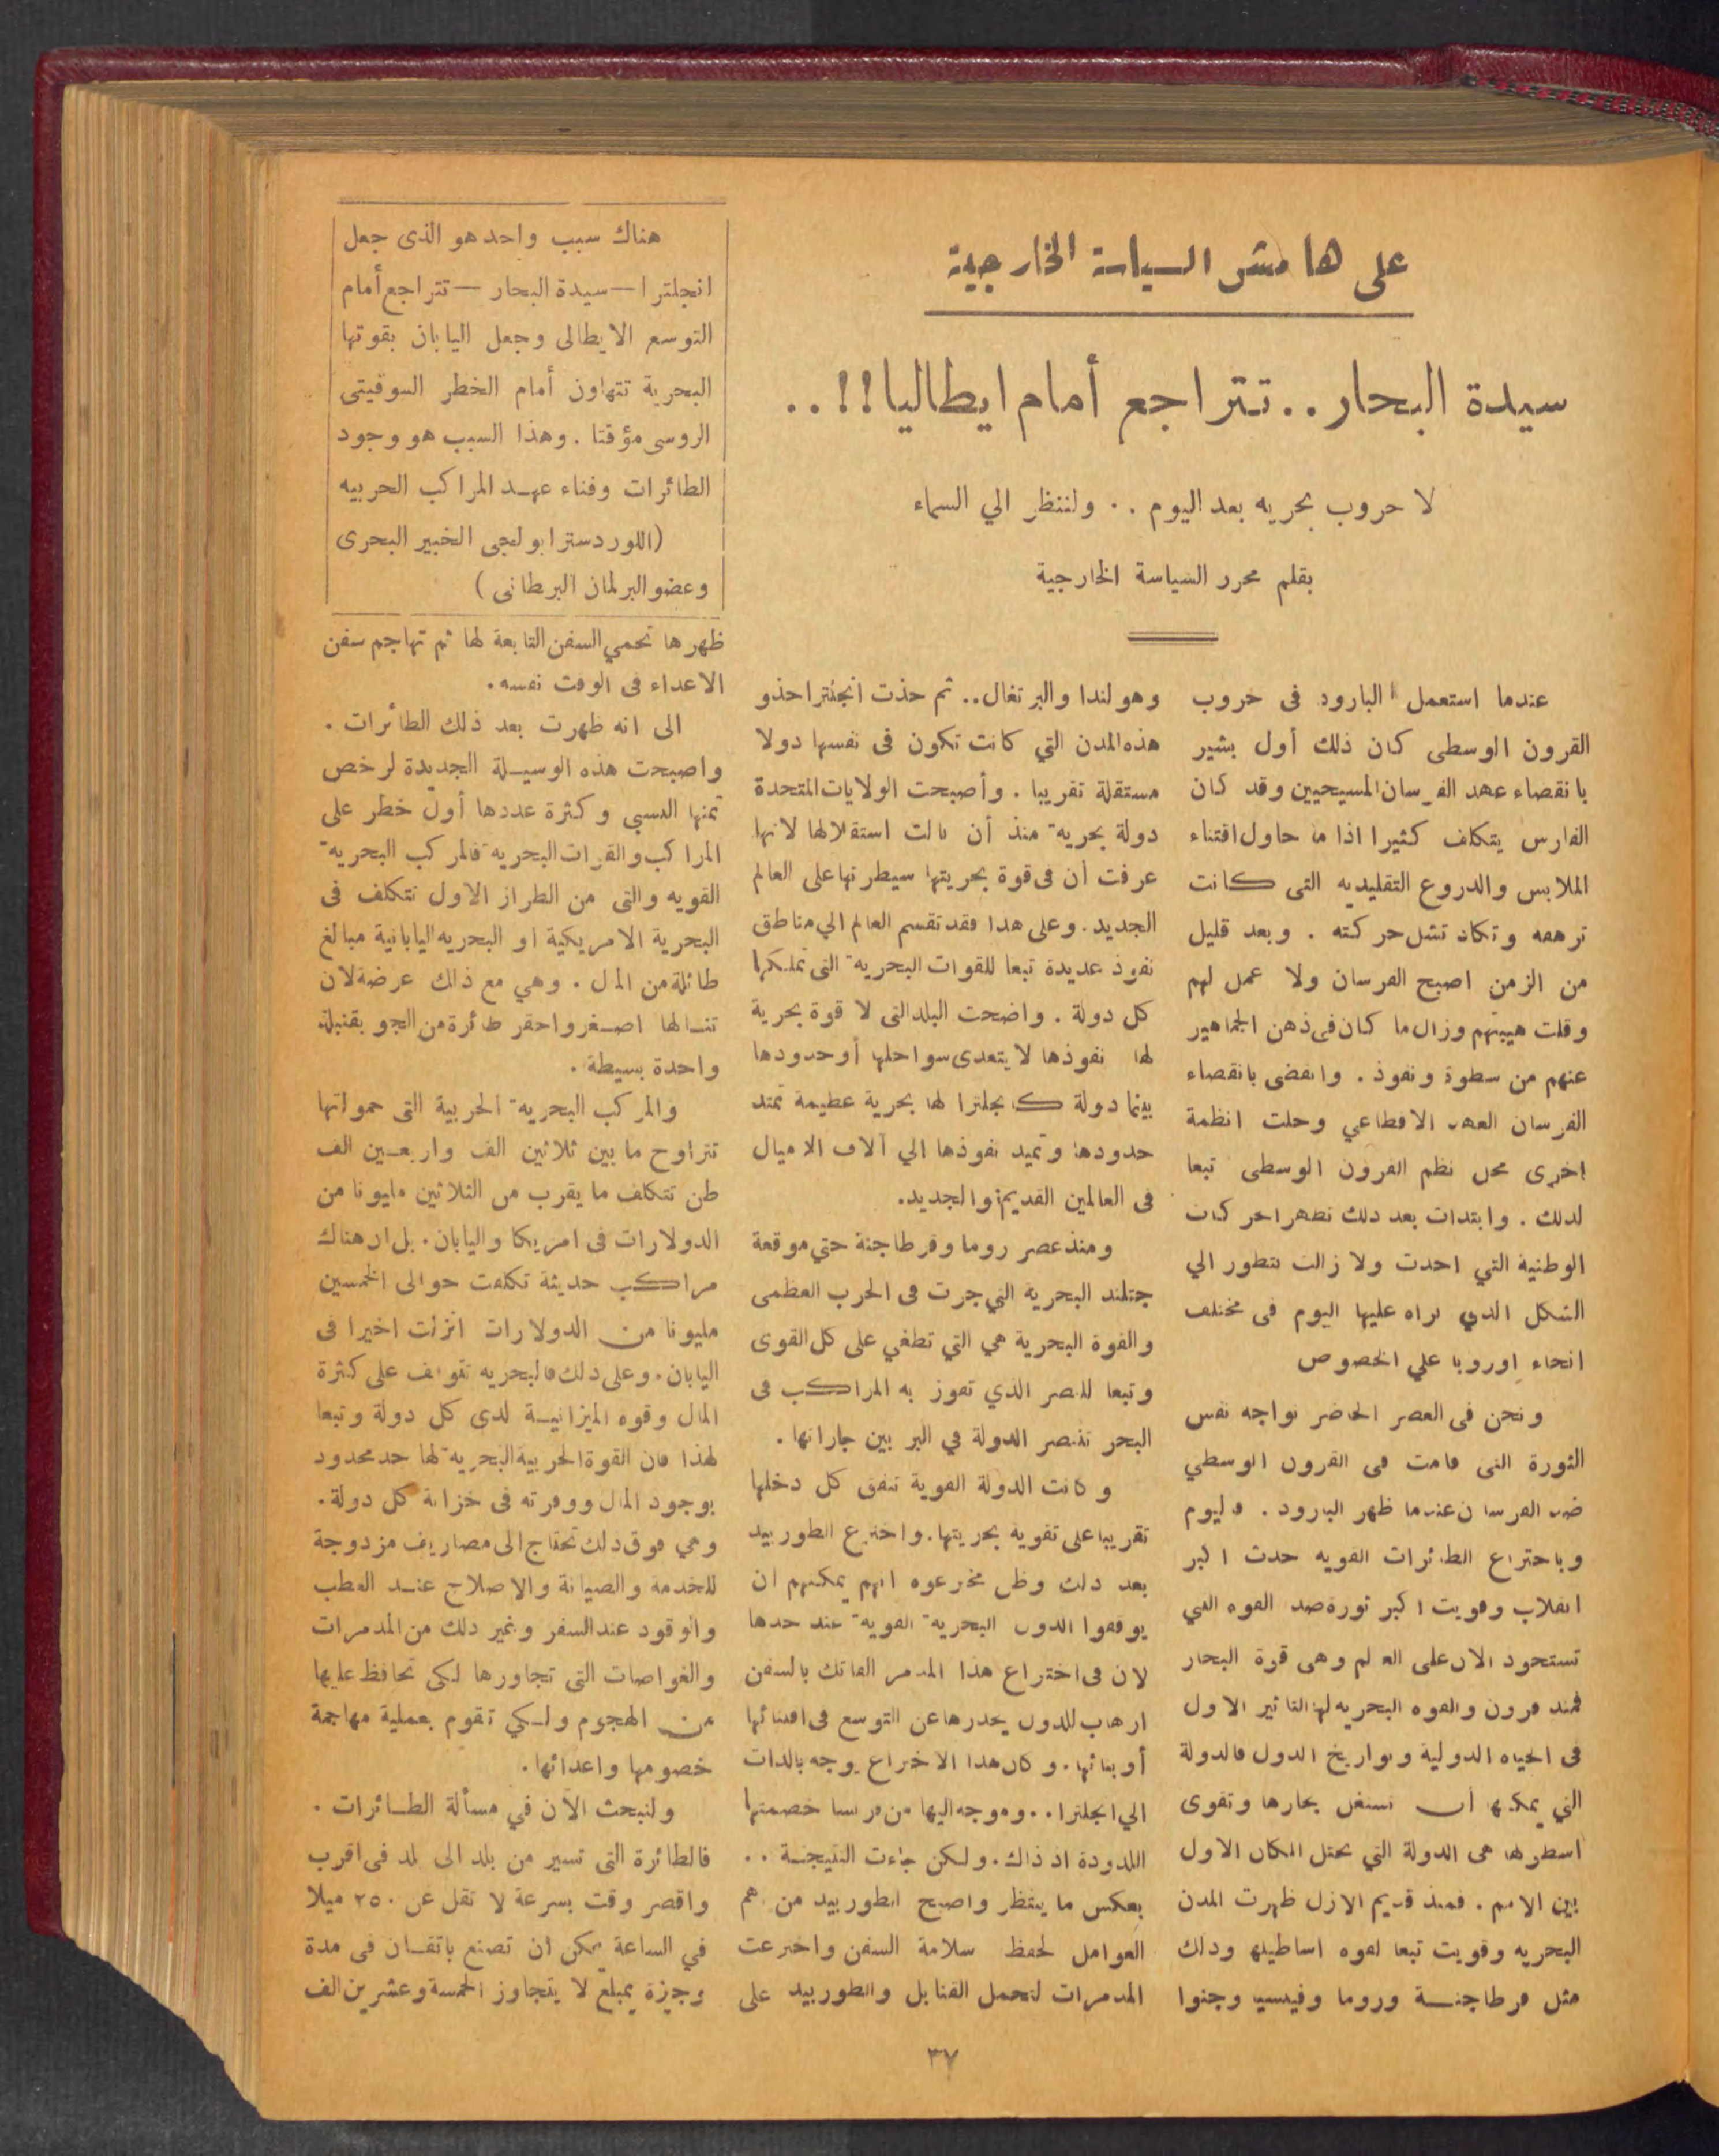 على هامش السياسة الخارجية
سيدة البحار .. تتراجع أمام ايطاليا!! ..
لا حروب بحريه بعد اليوم .. ولننظر الي السماء
بقلم محرر السياسة الخارجية
هناك سبب واحد هو الذى جعل
انجلترا — سيدة البحار — تتراجع أمام
التوسع الايطالى وجعل اليابان بقوتها
البحرية تتهاون أمام الخطر السوفيتى
الروسى مؤقتا . وهذا السبب هو وجود
الطائرات وفناء عهد المراكب الحربيه
(اللورد سترابولجى الخبير البحرى
وعضو البرلمان البرطانى )
عندما استعمل البارود فى حروب
القرون الوسطى كان ذلك أول بشير
بانقضاء عهد الفرسان المسيحيين وقد كان
الفارس يتكلف كثيرا اذا ما حاول اقتناء
الملابس والدروع التقليديه التى كانت
ترهقه وتكاد تشل حركته . وبعد قليل
من الزمن اصبح الفرسان ولا عمل لهم
وقلت هيبتهم وزال ما كان فى ذهن الجماهير
عنهم من سطوة ونفوذ . وانقضى بانقضاء
الفرسان العهد الاقطاعي وحلت انظمة
اخرى محل نظم القرون الوسطى تبعا
لذلك . وابتدات بعد ذلك تظهر الحركات
الوطنيه التي اخذت ولا زالت تتطور الي
الشكل الذي نراه عليها اليوم فى مختلف
انحاء اوروبا علي الخصوص
ونحن فى العصر الحاضر نواجه نفس
الثورة التى قامت فى القرون الوسطي
ضد الفرسان عندما ظهر البارود . فاليوم
وباختراع الطائرات القويه حدث اكبر
انقلاب وقويت اكبر ثورة ضد القوه التي
تستحوذ الان على العالم وهى قوة البحار
فمنذ قرون والقوه البحريه لها التاثير الاول
فى الحياه الدولية وتواريخ الدول فالدولة
التي يمكنها أن تستغل بحارها وتقوى
اسطولها هى الدولة التي تحتل المكان الاول
بين الامم . فمنذ قديم الازل ظهرت المدن
البحريه وقويت تبعا لقوه اساطيلها وذلك
مثل قرطاجنة وروما وفينسيا وجنوا
وهولندا والبرتغال.. ثم حذت انجلترا حذو
هذه المدن التي كانت تكون فى نفسها دولا
مستقلة تقريبا . وأصبحت الولايات المتحدة
دولة بحرية منذ أن نالت استقلالها لانها
عرفت أن فى قوة بحريتها سيطرتها على العالم
الجديد . وعلى هذا فقد تقسم العالم الي مناطق
نفوذ عديدة تبعا للقوات البحرية التى تملكها
كل دولة . واضحت البلد التى لا قوة بحرية
لها نفوذها لا يتعدى سواحلها أو حدودها
بينما دولة كانجلترا لها بحرية عظيمة تمتد
حدودها وتميد نفوذها الي آلاف الاميال
فى العالمين القديم والجديد.
ومنذ عصر روما وقرطاجنة حتي موقعة
جتلند البحرية التي جرت فى الحرب العظمى
والقوة البحرية هي التي تطغي على كل القوى
وتبعا للنصر الذي تفوز به المراكب فى
البحر تنتصر الدولة في البر بين جاراتها .
وكانت الدولة القوية تنفق كل دخلها
تقريبا على تقوية بحريتها . واخترع الطوربيد
بعد ذلك وظن مخترعوه انهم يمكنهم ان
يوقفوا الدول البحرية القوية عند حدها
لان فى اختراع هذا المدمر الفاتك بالسفن
ارهاب للدول يحذرها عن التوسع فى اقتنائها
أو بنائها . وكان هذا الاختراع يوجه بالذات
الي انجلترا .. وموجه اليها من فرنسا خصمتها
اللدودة اذ ذاك . ولكن جاءت النتيجة ..
بعكس ما ينتظر واصبح الطوربيد من اهم
العوامل لحفظ سلامة السفن واخترعت
المدمرات لتحمل القنابل والطوربيد على
ظهرها تحمي السفن التابعة لها ثم تهاجم سفن
الاعداء فى الوقت نفسه .
الى انه ظهرت بعد ذلك الطائرات .
واصبحت هذه الوسيلة الجديدة لرخص
ثمنها النسبي وكثرة عددها أول خطر على
المراكب والقوات البحرية فالمركب البحرية
القويه والتى من الطراز الاول تتكلف فى
البحرية الامريكية او البحريه اليابانية مبالغ
طائلة من المال . وهي مع ذالك عرضة لان
تنالها اصغر واحقر طائرة من الجو بقنبلة
واحدة بسيطة .
والمركب البحرية الحربية التى حمولتها
تتراوح ما بين ثلاثين الف واربعين الف
طن تتكلف ما يقرب من الثلاثين مليونا من
الدولارات فى امريكا واليابان . بل ان هناك
مراكب حديثة تكلفت حوالى الخمسين
مليونا من الدولارات انزلت اخيرا فى
اليابان . وعلى ذلك فالبحريه تتوقف على كثرة
المال وقوه الميزانية لدى كل دولة وتبعا
لهذا فان القوة الحربية البحرية لها حد محدود
بوجود المال ووفرته فى خزانة كل دولة .
وهي فوق ذلك تحتاج الى مصاريف مزدوجة
للخدمة والصيانة والاصلاح عند العطب
والوقود عند السفر وغير ذلك من المدمرات
والغواصات التى تجاورها لكى تحافظ عليها
من الهجوم ولكي تقوم بعملية مهاجمة
خصومها واعدائها .
ولنبحث الآن في مسألة الطائرات .
فالطائرة التى تسير من بلد الى بلد فى اقرب
واقصر وقت بسرعة لا تقل عن ٢٥٠ ميلا
في الساعة يمكن ان تصنع باتقان فى مدة
وجيزة بمبلغ لا يتجاوز الخمسة وعشرين الف
٣٧